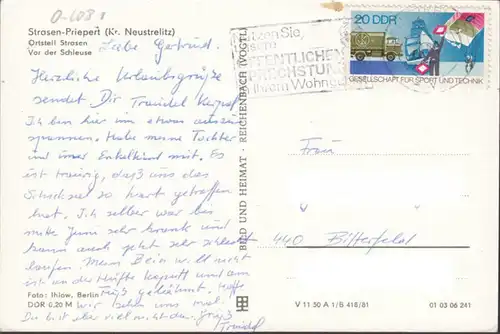 O-1081
Strasen-Priepert (Kr. Neustrelitz)
Ortsteil Strasen
Vor der Schleuse
Liebe Gertrud.
Herzliche Urlaubsgrüße
sendet Dir Traudel
Ich bin hier um etwas auszu
spannen. Habe meine Tochter
und unser Enkelkind mit. Es
ist traurig, daß uns das
Schicksal so hart getroffen
hat. Ich selber war bis
mitte Juni sehr krank und
kann auch jetzt sehr schlecht
laufen. Mein Bein will nicht
ist an der Hüfte kaputt und am
Fuß gelähmt. Hoffe
wir sehn uns mal.
Du bist aber viel mit der
Traudel
Foto: Ihlow, Berlin
DDR 0,20 M
BILD UND HEIMAT · REICHENBACH (VOGTL)
tzen Sie,
nsere
FFENTLICHEN
PRECHSTUN
Ihrem Wohnge
20 DDR
GESELLSCHAFT FÜR SPORT UND TECHNIK
Frau
440 Bitterfeld
V 11 50 A 1/B 418/81
01 03 06 241